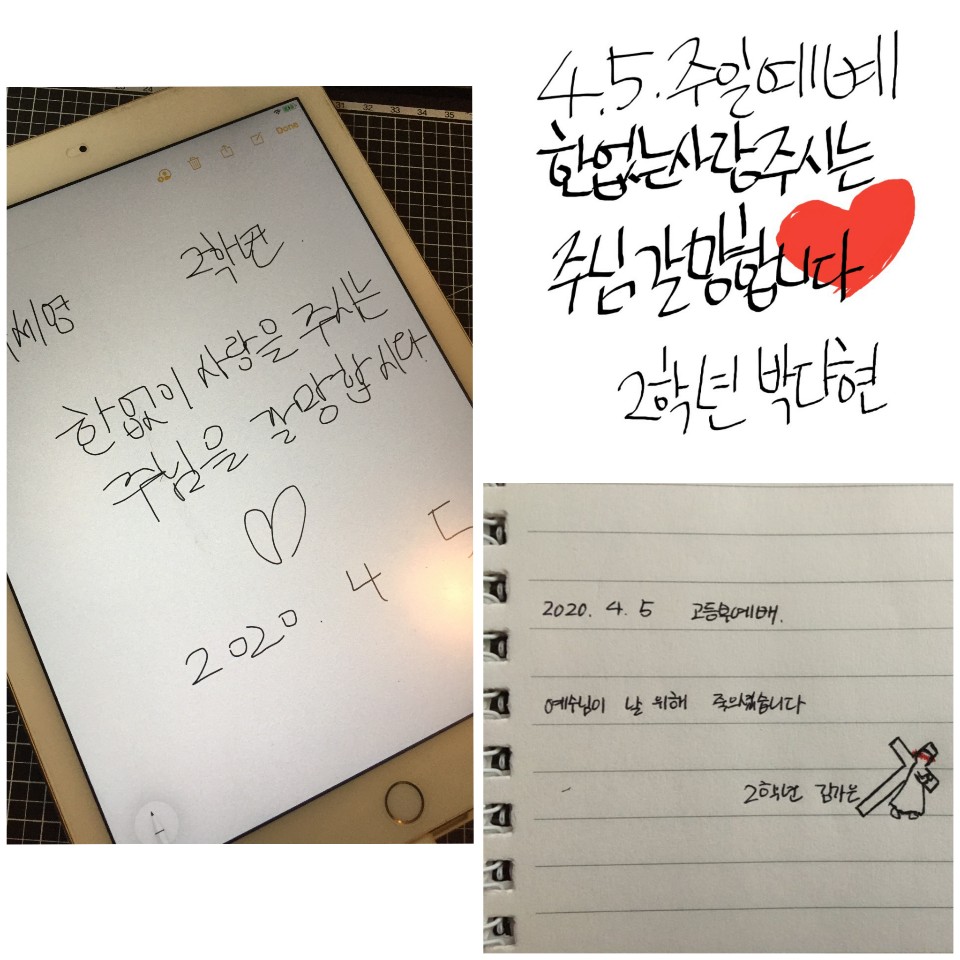 Done
2학년
세영
한없이 사랑을 주시는
주님을 갈망합시다.
2020. 4 5
4.5. 주일예배
한없는사랑주시는
주님갈망합니다
2학년 박다현
2020. 4. 5 고등부예배.
예수님이 날 위해
2학년 김가은